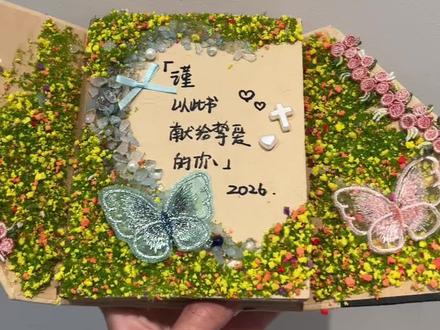 「谨
以此书
献给挚爱
的你、」
2026.